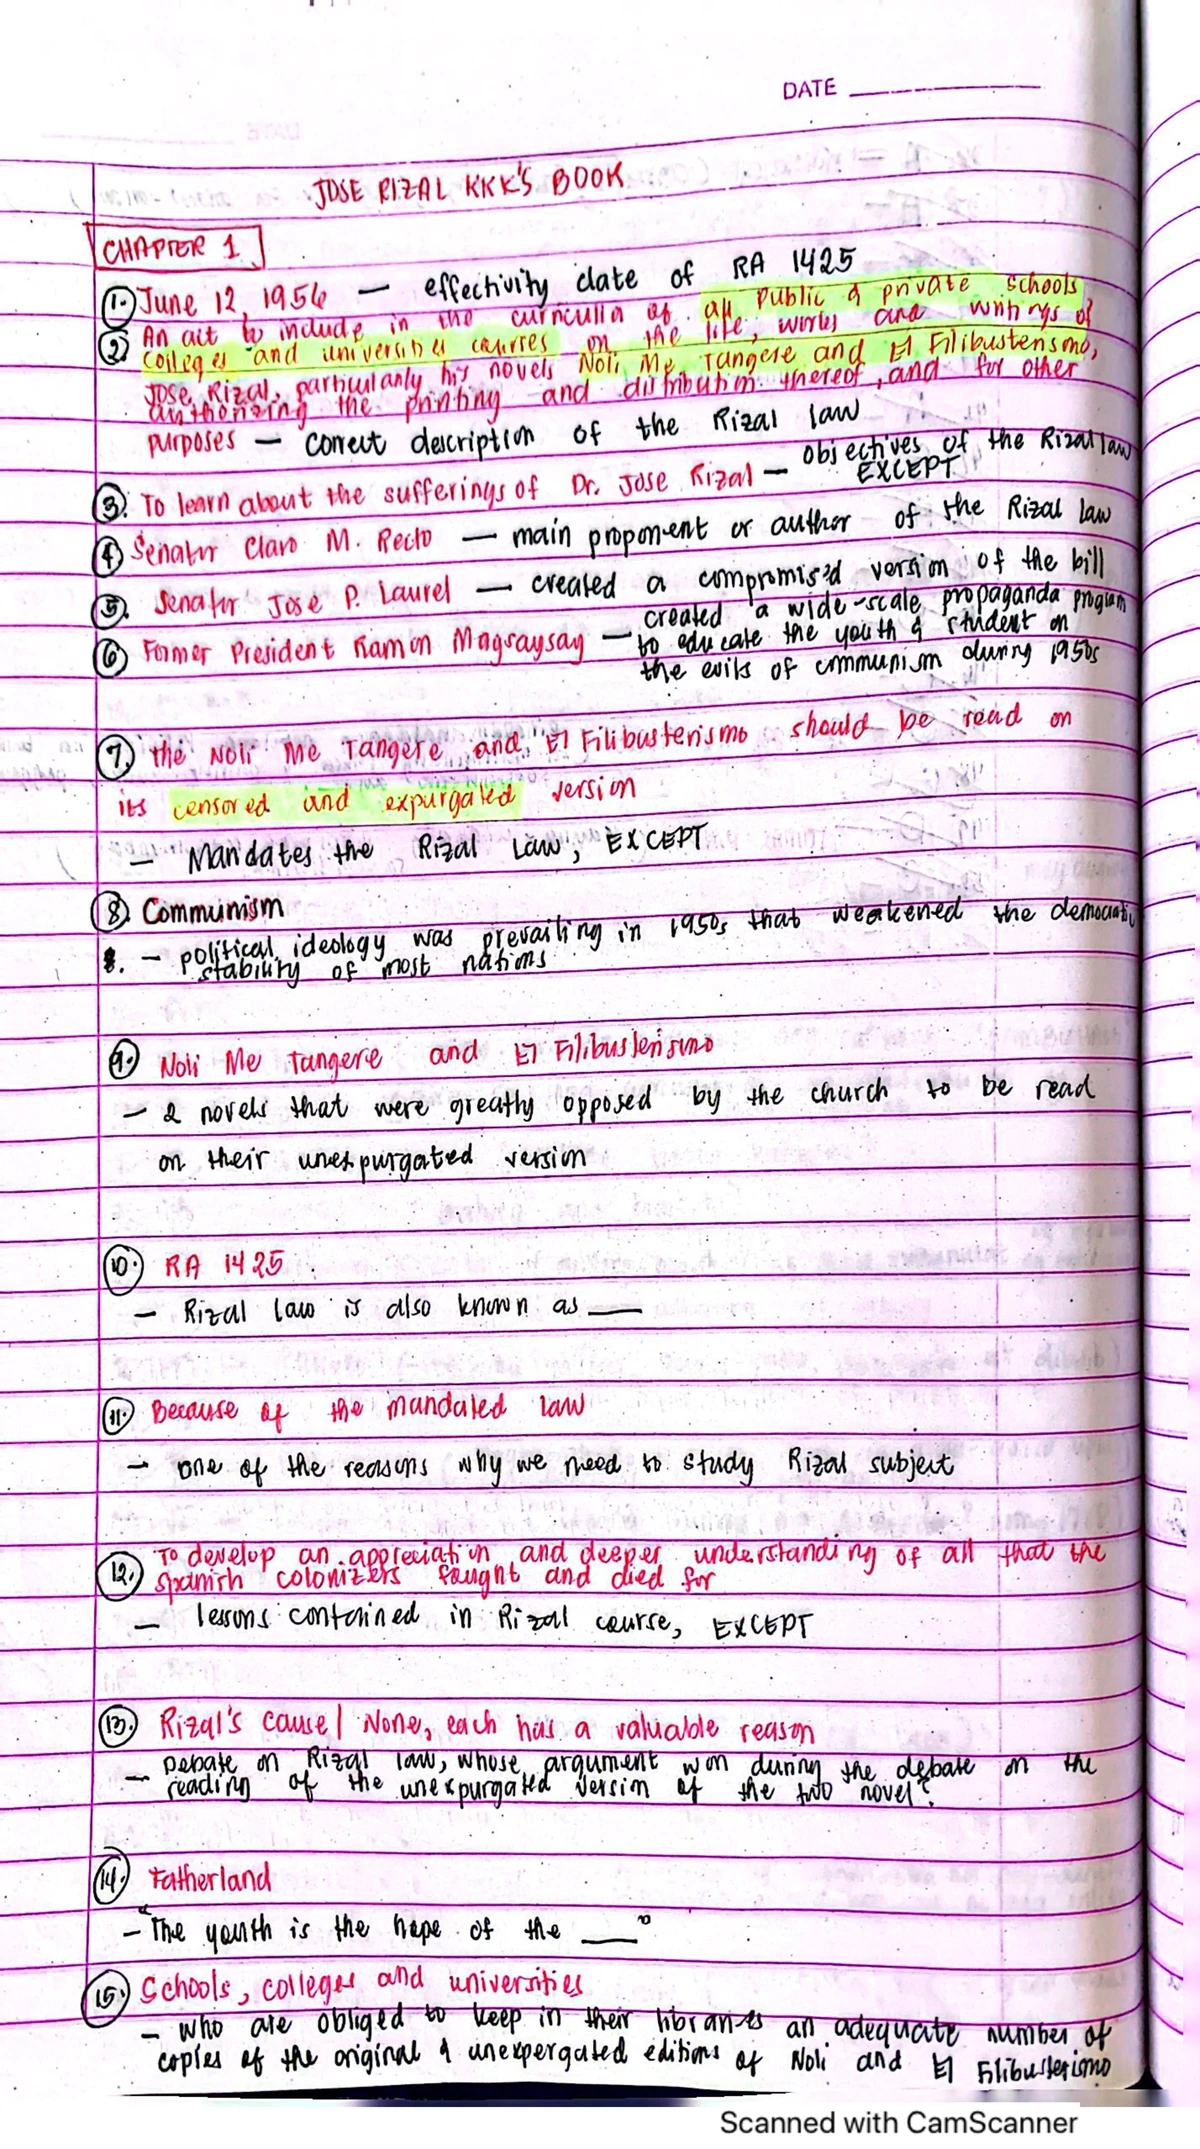 DATE
JOSE RIZAL KKK'S BOOK
CHAPTER 1
1. June 12, 1956 — effectivity date of RA 1425
2. An act to include in the curriculla of all public & private schools
colleges and universities courses on the life, works and writings of
Jose Rizal, particularly his novels Noli Me Tangere and El Filibusterismo,
authorizing the printing and distribution thereof, and for other
purposes — correct description of the Rizal law
3. To learn about the sufferings of Dr. Jose Rizal — objectives of the Rizal law
EXCEPT
4. Senator Claro M. Recto — main proponent or author of the Rizal law
5. Senator Jose P. Laurel — created a compromised version of the bill
6. Former President Ramon Magsaysay — created a wide-scale propaganda program
to educate the youth & student on
the evils of communism during 1950s
7. the Noli Me Tangere and El Filibusterismo should be read on
its censored and expurgated version
— Mandates the Rizal Law, EXCEPT
8. Communism
8. — political ideology was prevailing in 1950s that weakened the democratic
stability of most nations
9. Noli Me Tangere and El Filibusterismo
— 2 novels that were greatly opposed by the church to be read
on their unexpurgated version
10. RA 1425
— Rizal law is also known as ___
11. Because of the mandated law
— one of the reasons why we need to study Rizal subject
12. To develop an appreciation and deeper understanding of all that the
spanish colonizers fought and died for
— lessons contained in Rizal course, EXCEPT
13. Rizal's cause | None, each has a valuable reason
— Debate on Rizal law, whose argument won during the debate on the
reading of the unexpurgated version of the two novel?
14. Fatherland
— "The youth is the hope of the ___"
15. Schools, colleges and universities
— who are obliged to keep in their libraries an adequate number of
copies of the original & unexpergated editions of Noli and El Filibusterismo
Scanned with CamScanner